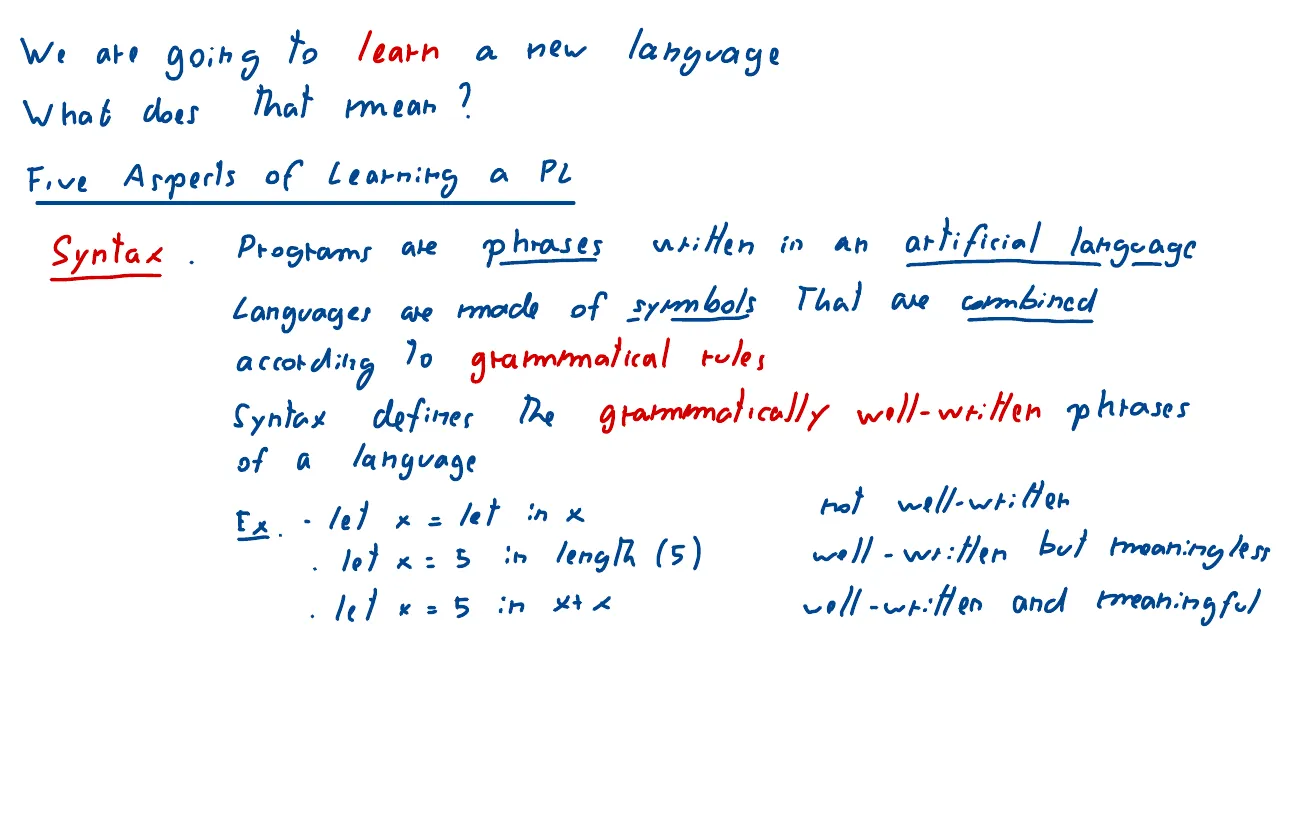 We are going to learn a new language
What does that mean?
Five Aspects of Learning a PL
Syntax. Programs are phrases written in an artificial language
Languages are made of symbols that are combined
according to grammatical rules
Syntax defines the grammatically well-written phrases
of a language
Ex. · let x = let in x not well-written
· let x = 5 in length (5) well-written but meaningless
· let x = 5 in x+x well-written and meaningful